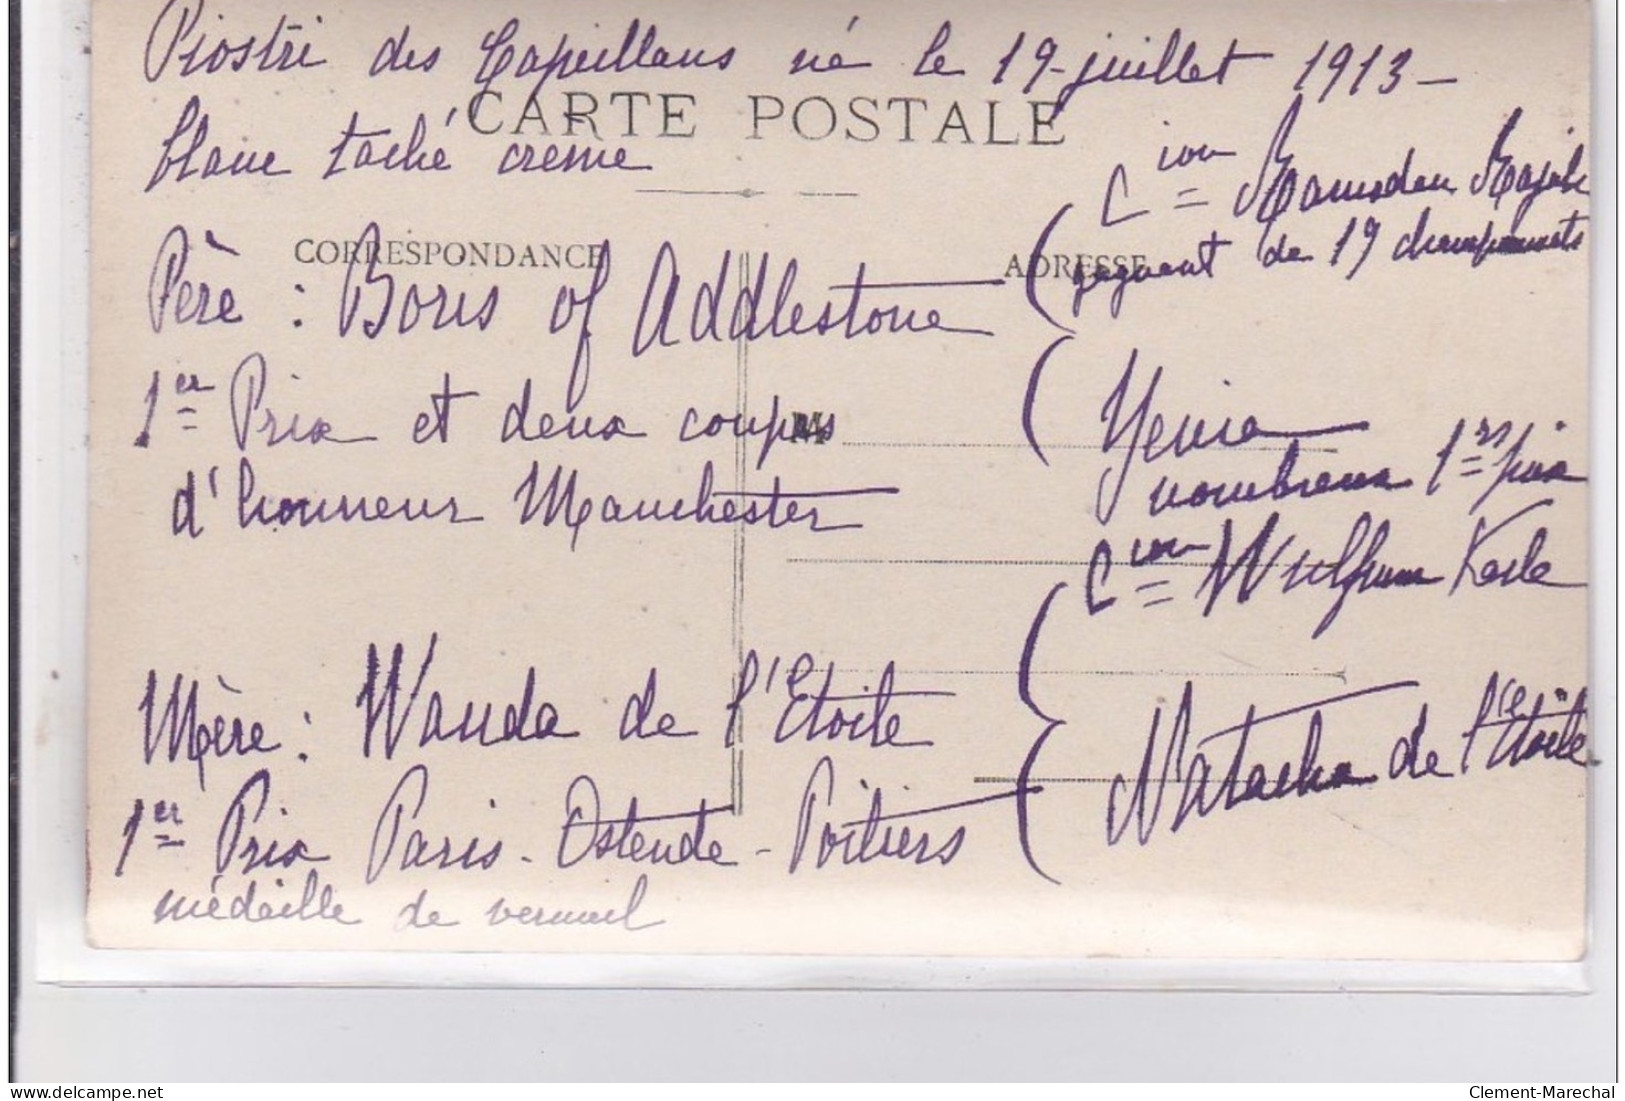 Piostri des Capeillans né le 19 juillet 1913 -
CARTE POSTALE
blanc taché crème
CORRESPONDANCE
ADRESSE
Père : Boris of Addlestone
1er Prix et deux coupes
d'honneur Manchester
Cion Ramsden Rajah
gagnant de 19 championnats
Yenia
nombreux 1ers prix
Cion Wulfrum
Mère : Wanda de l'Etoile
1er Prix Paris - Ostende - Poitiers
médaille de vermeil
Natacha de l'Etoile
Clement-Marechal
www.delcampe.net